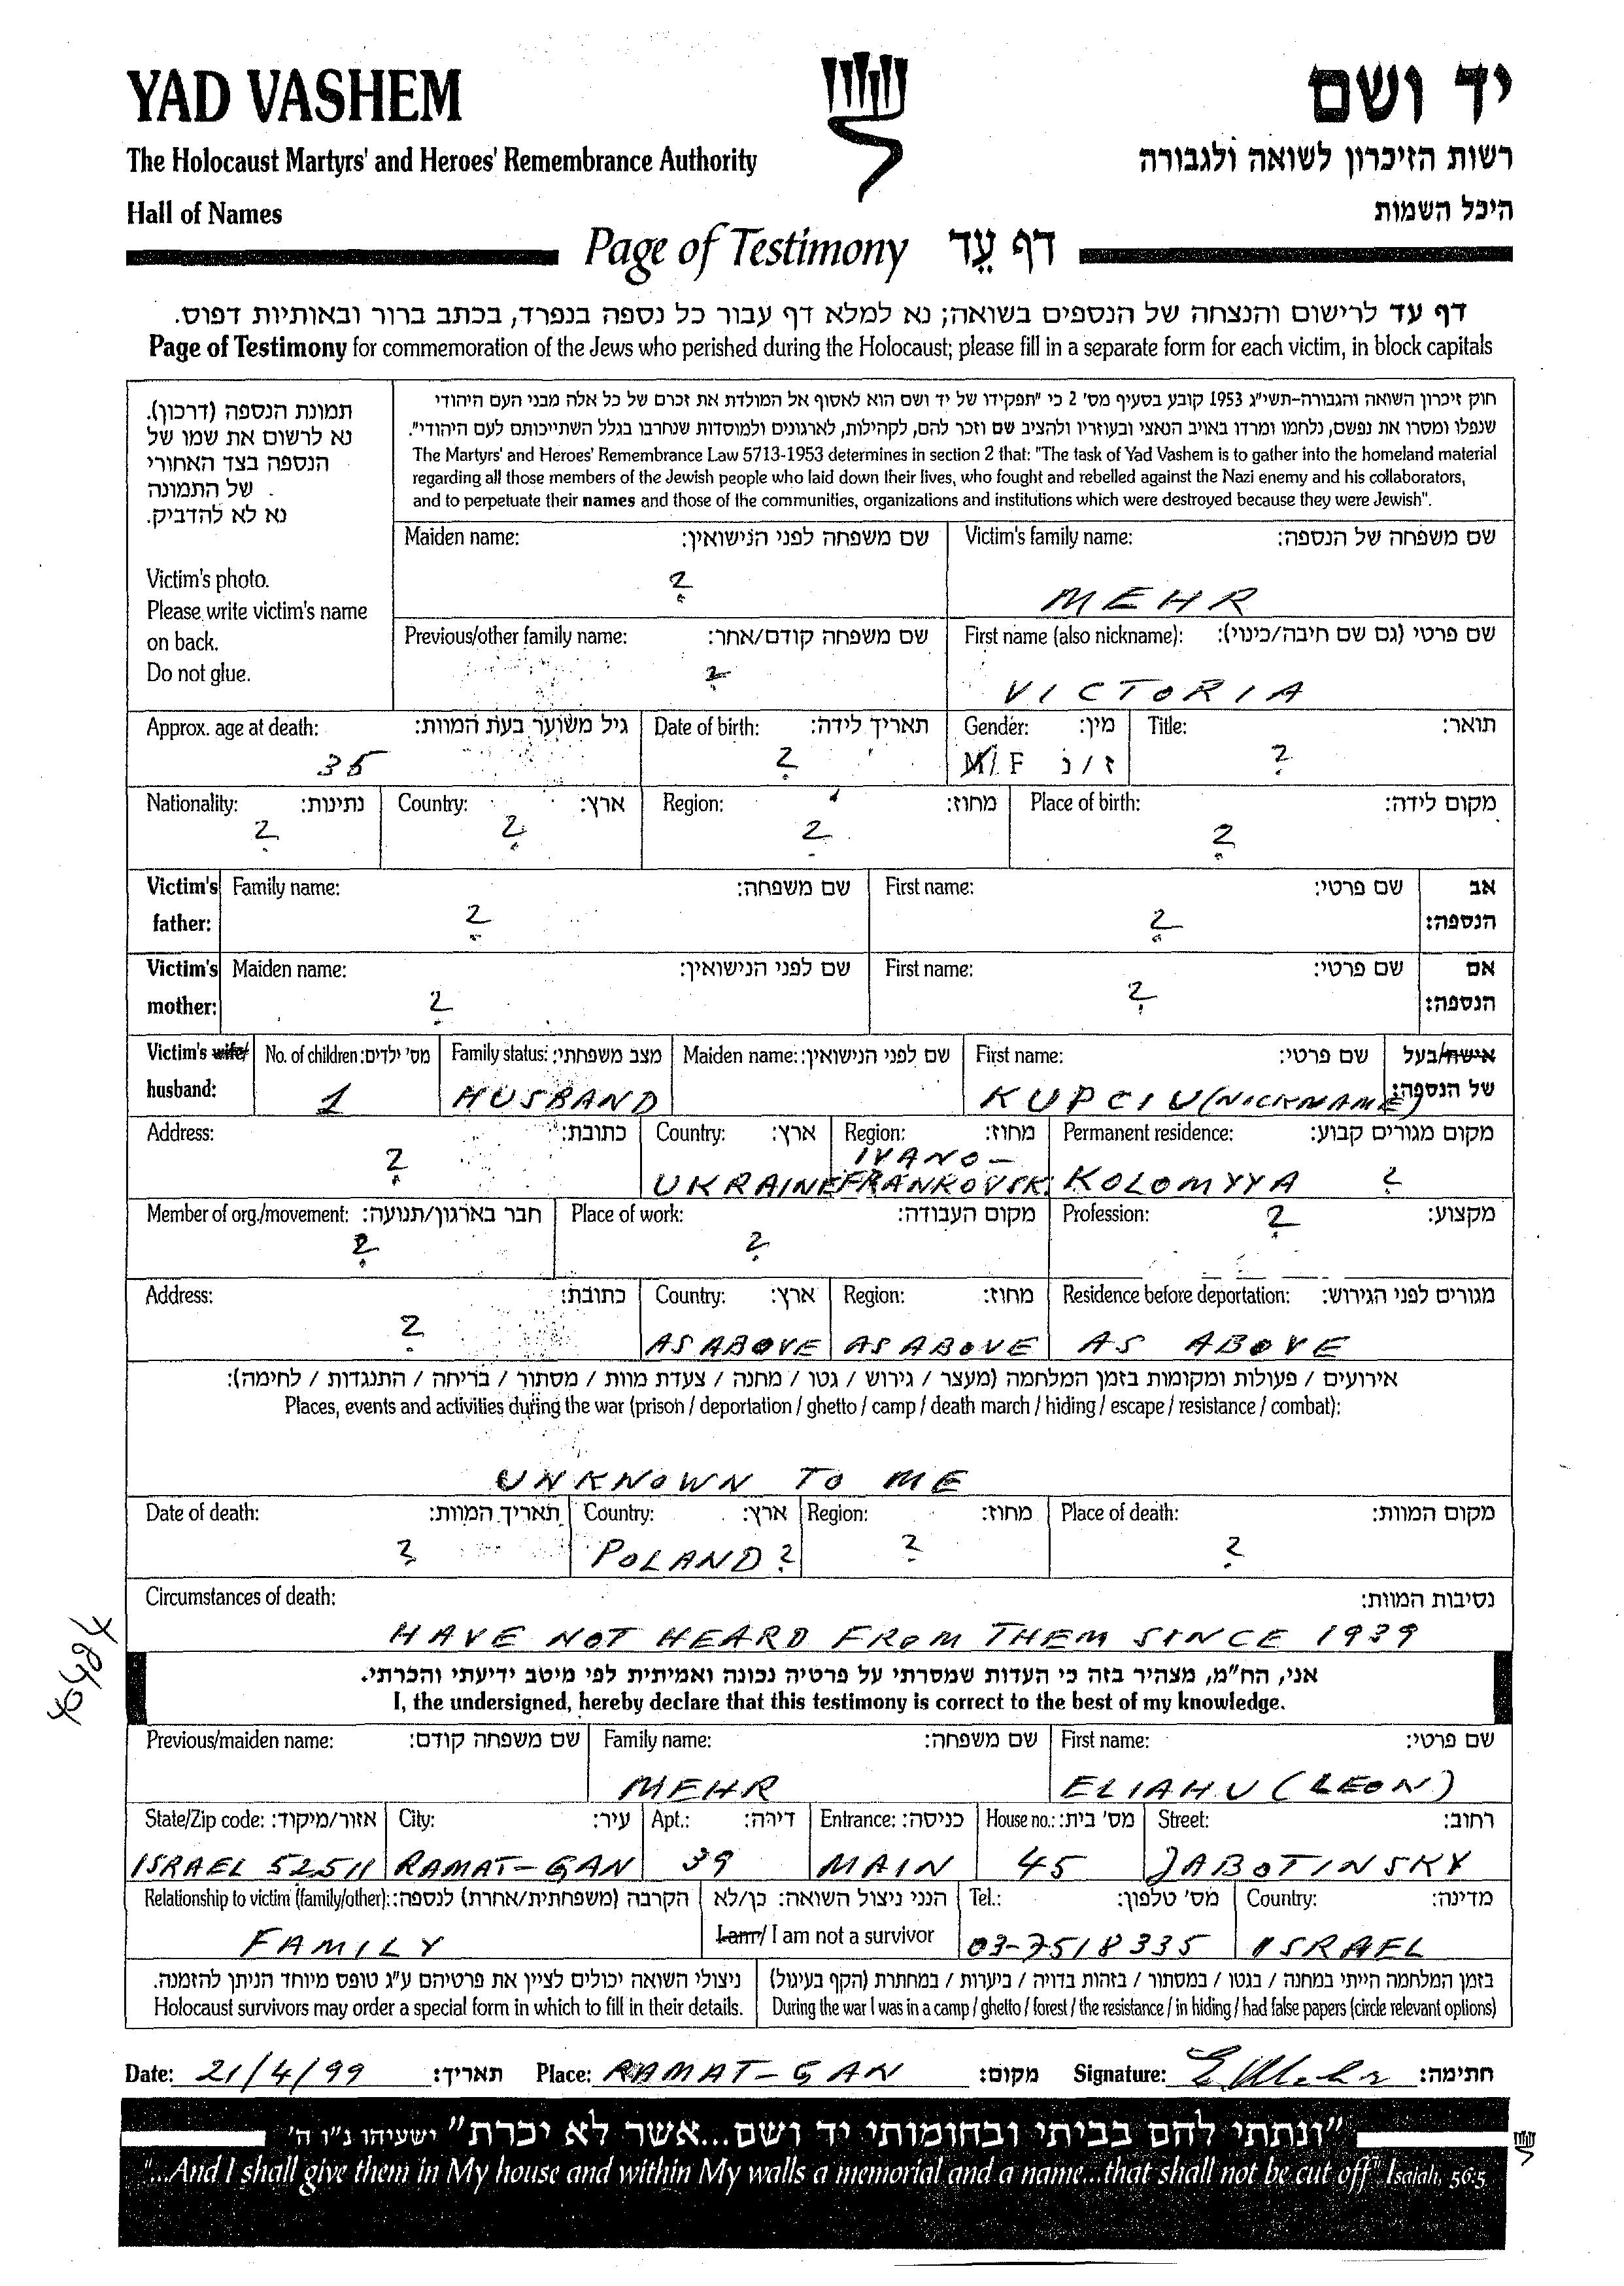 YAD VASHEM
יד ושם
The Holocaust Martyrs' and Heroes' Remembrance Authority
רשות הזיכרון לשואה ולגבורה
Hall of Names
היכל השמות
Page of Testimony דף עֵד
דף עד לרישום והנצחה של הנספים בשואה; נא למלא דף עבור כל נספה בנפרד, בכתב ברור ובאותיות דפוס.
Page of Testimony for commemoration of the Jews who perished during the Holocaust; please fill in a separate form for each victim, in block capitals
תמונת הנספה (דרכון).
נא לרשום את שמו של
הנספה בצד האחורי
של התמונה
נא לא להדביק.
Victim's photo.
Please write victim's name
on back.
Do not glue.
חוק זיכרון השואה והגבורה-תשי"ג 1953 קובע בסעיף מס' 2 כי "תפקידו של יד ושם הוא לאסוף אל המולדת את זכרם של כל אלה מבני העם היהודי
שנפלו ומסרו את נפשם, נלחמו ומרדו באויב הנאצי ובעוזריו ולהציב שם וזכר להם, לקהילות, לארגונים ולמוסדות שנחרבו בגלל השתייכותם לעם היהודי".
The Martyrs' and Heroes' Remembrance Law 5713-1953 determines in section 2 that: "The task of Yad Vashem is to gather into the homeland material
regarding all those members of the Jewish people who laid down their lives, who fought and rebelled against the Nazi enemy and his collaborators,
and to perpetuate their names and those of the communities, organizations and institutions which were destroyed because they were Jewish".
Maiden name: שם משפחה לפני הנישואין: Victim's family name: שם משפחה של הנספה:
? MEHR
Previous/other family name: שם משפחה קודם/אחר: First name (also nickname): שם פרטי (גם שם חיבה/כינוי):
? VICTORIA
Approx. age at death: גיל משוער בעת המוות: Date of birth: תאריך לידה: Gender: מין: Title: תואר:
35 ? M/F ז/נ ?
Nationality: נתינות: Country: ארץ: Region: מחוז: Place of birth: מקום לידה:
? ? ? ?
Victim's father: Family name: שם משפחה: First name: שם פרטי: אב הנספה:
? ?
Victim's mother: Maiden name: שם לפני הנישואין: First name: שם פרטי: אם הנספה:
? ?
Victim's wife/ husband: No. of children: מס' ילדים: Family status: מצב משפחתי: Maiden name: שם לפני הנישואין: First name: שם פרטי: אישה/בעל של הנספה:
1 HUSBAND KUPCIU (NICKNAME)
Address: כתובת: Country: ארץ: Region: מחוז: Permanent residence: מקום מגורים קבוע:
? UKRAINE IVANO-FRANKOVSK KOLOMYYA ?
Member of org./movement: חבר בארגון/תנועה: Place of work: מקום העבודה: Profession: מקצוע:
? ? ?
Address: כתובת: Country: ארץ: Region: מחוז: Residence before deportation: מגורים לפני הגירוש:
? AS ABOVE AS ABOVE AS ABOVE
אירועים / פעולות ומקומות בזמן המלחמה (מעצר / גירוש / גטו / מחנה / צעדת מוות / מסתור / בריחה / התנגדות / לחימה):
Places, events and activities during the war (prison / deportation / ghetto / camp / death march / hiding / escape / resistance / combat):
UNKNOWN TO ME
Date of death: תאריך המוות: Country: ארץ: Region: מחוז: Place of death: מקום המוות:
? POLAND ? ? ?
Circumstances of death: נסיבות המוות:
HAVE NOT HEARD FROM THEM SINCE 1939
אני, הח"מ, מצהיר בזה כי העדות שמסרתי על פרטיה נכונה ואמיתית לפי מיטב ידיעתי והכרתי.
I, the undersigned, hereby declare that this testimony is correct to the best of my knowledge.
Previous/maiden name: שם משפחה קודם: Family name: שם משפחה: First name: שם פרטי:
MEHR ELIAHU (LEON)
State/Zip code: אזור/מיקוד: City: עיר: Apt.: דירה: Entrance: כניסה: House no.: מס' בית: Street: רחוב:
ISRAEL 52511 RAMAT-GAN 39 MAIN 45 JABOTINSKY
Relationship to victim (family/other): הקרבה (משפחתית/אחרת) לנספה: הנני ניצול השואה: כן/לא Tel.: מס' טלפון: Country: מדינה:
FAMILY I am/ I am not a survivor 03-7518335 ISRAEL
ניצולי השואה יכולים לציין את פרטיהם ע"ג טופס מיוחד הניתן להזמנה. בזמן המלחמה הייתי במחנה / בגטו / במסתור / בזהות בדויה / ביערות / במחתרת (הקף בעיגול)
Holocaust survivors may order a special form in which to fill in their details. During the war I was in a camp / ghetto / forest / the resistance / in hiding / had false papers (circle relevant options)
Date: 21/4/99 תאריך: Place: RAMAT-GAN מקום: Signature: E. Mehr חתימה:
"ונתתי להם בביתי ובחומותי יד ושם...אשר לא יכרת" ישעיהו נ"ו ה'
"...And I shall give them in My house and within My walls a memorial and a name...that shall not be cut off" Isaiah, 56:5